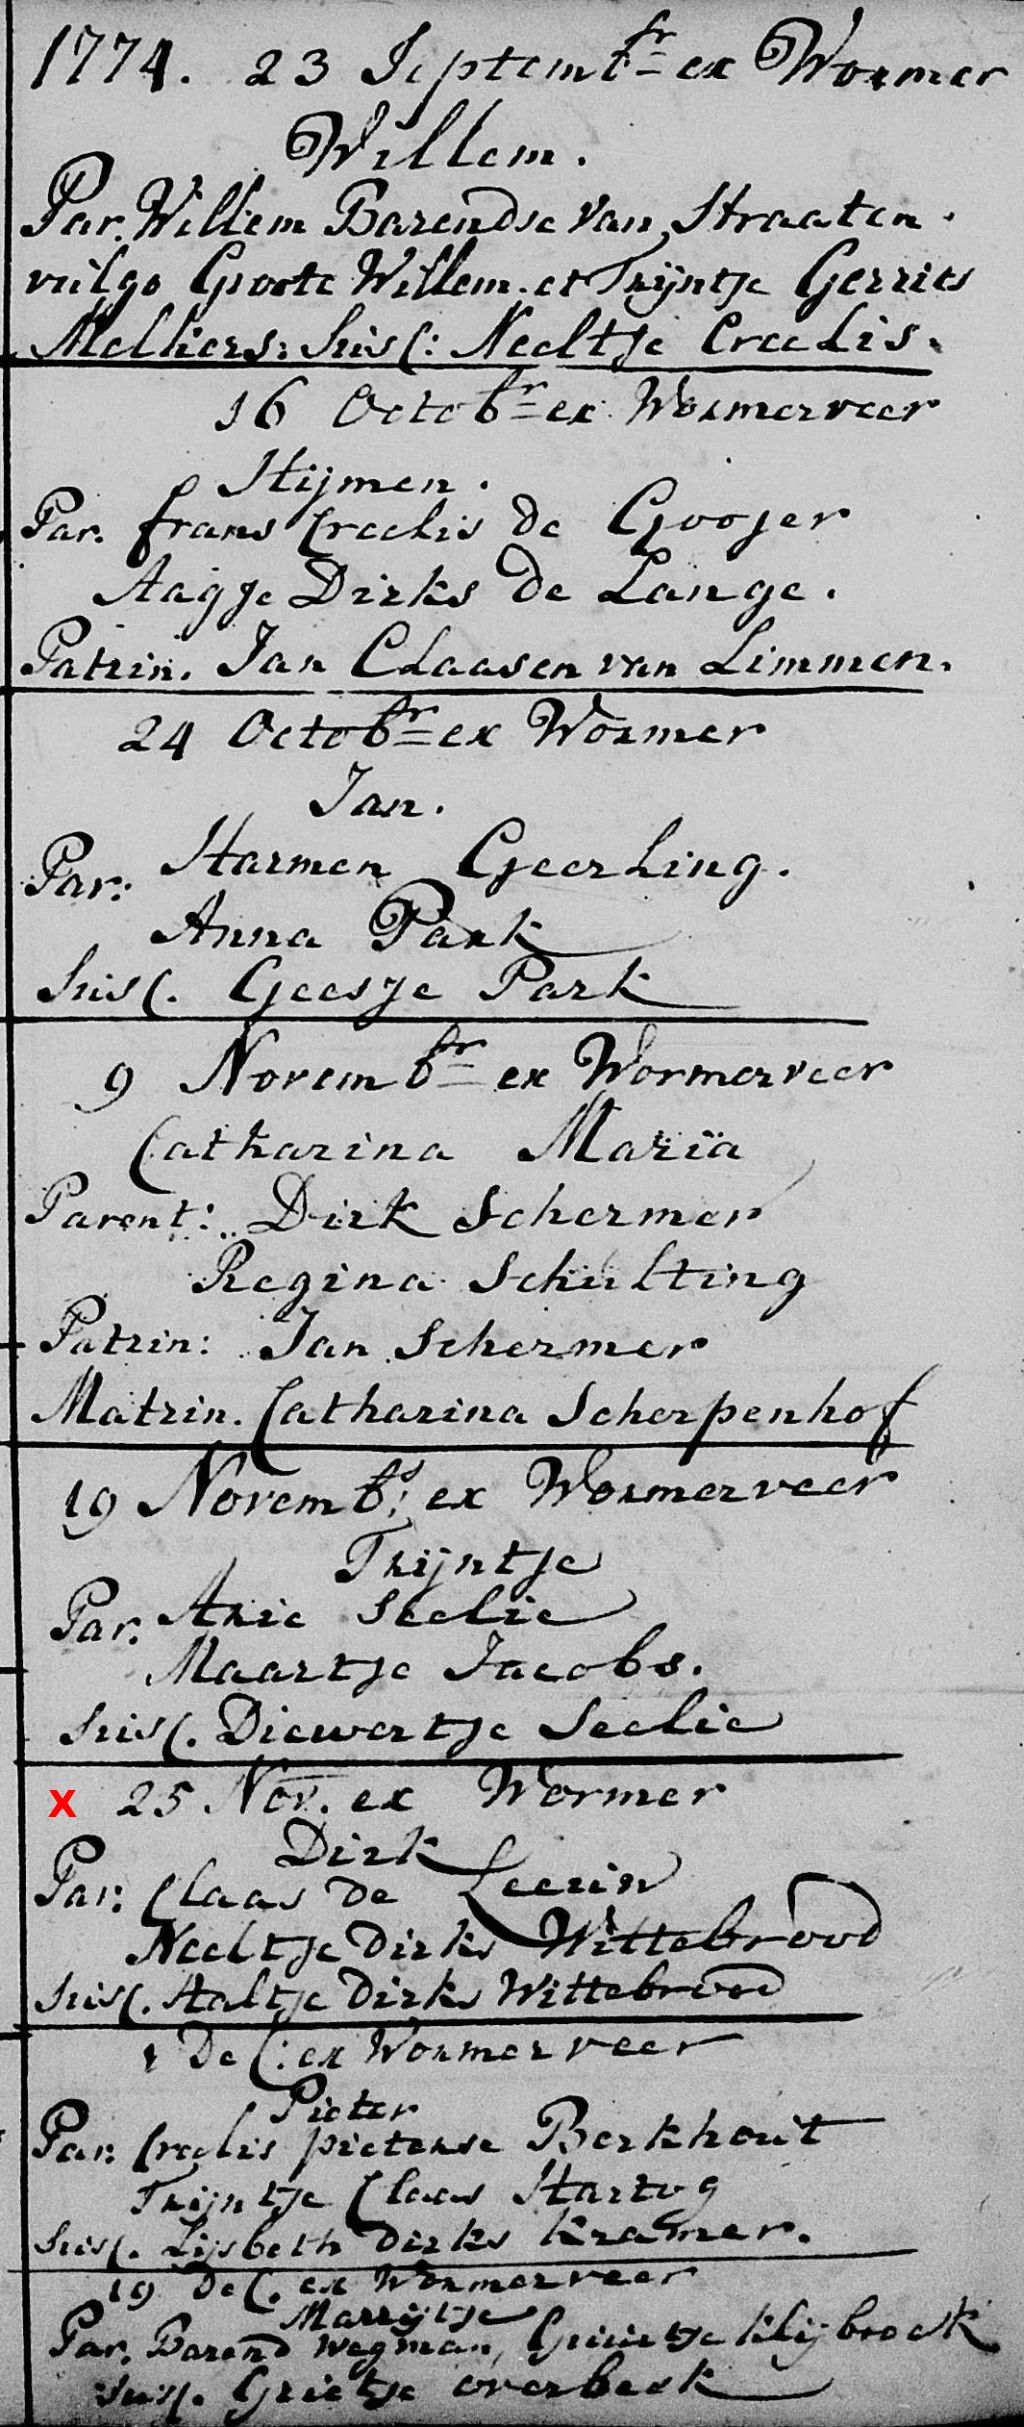 1774. 23 Septembr ex Wormer
Willem.
Par. Willem Barendse Van Straaten.
vulgo Groote Willem. et Trijntje Gerrits
Melkers: Susc: Neeltje Creelis.
16 Octobr ex Wormerveer
Hijmen.
Par. frans Creelis de Goojer
Aagje Dirks de Lange.
Patrin. Jan Claasen van Limmen.
24 Octobr ex Wormer
Jan.
Par: Harmen Geerling.
Anna Park
Susc. Geesje Park
9 Novembr ex Wormerveer
Catharina Maria
Parent: Dirk Schermer
Regina Schulting
Patrin: Jan Schermer
Matrin. Catharina Scherpenhof
19 Novembs: ex Wormerveer
Trijntje
Par. Arie Seelie
Maartje Jacobs.
Susc. Diewertje Seelie
x 25 Nov. ex Wormer
Dirk
Par: Claas de Leeuw
Neeltje Dirks Wittebrood
Susc. Aaltje Dirks Wittebrood
1 Dec: ex Wormerveer
Pieter
Par: Creelis pieterse Berkhout
Trijntje Claas Hartog
Susc. Lijsbeth Dirks Kramer.
19 Dec. ex Wormerveer
Marrijtje
Par. Barend Wegman, Grietje Klijbroek
Susc. Grietje overbeek